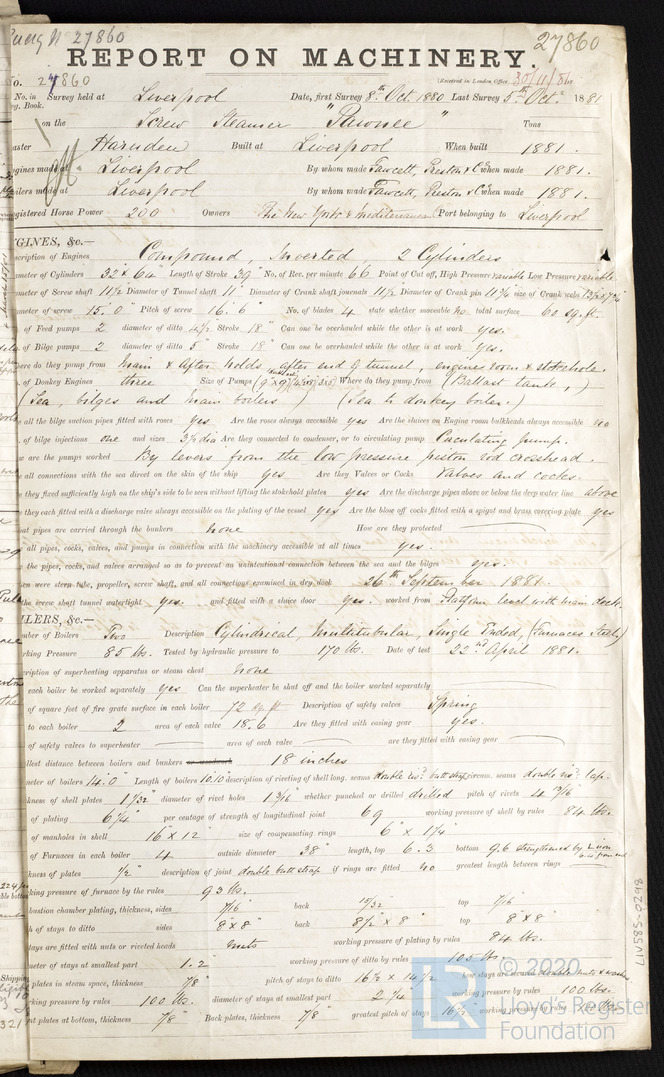 27860
27860
REPORT ON MACHINERY.
No. 27860 (Received in London Office 30/11/81
No. in Survey held at Liverpool Date, first Survey 8th Oct. 1880 Last Survey 5th Oct. 1881
Reg. Book.
on the Screw Steamer "Pawnee" Tons
aster Harnden Built at Liverpool When built 1881.
ngines made at Liverpool By whom made Fawcett, Preston & Co when made 1881.
oilers made at Liverpool By whom made Fawcett, Preston & Co when made 1881.
egistered Horse Power 200 Owners The New York & Mediterranean Port belonging to Liverpool
GINES, &c.—
scription of Engines Compound, Inverted 2 Cylinders
ameter of Cylinders 32" & 60" Length of Stroke 39" No. of Rev. per minute 66 Point of Cut off, High Pressure variable Low Pressure variable
ameter of Screw shaft 11½ Diameter of Tunnel shaft 11" Diameter of Crank shaft journals 11½ Diameter of Crank pin size of Crank webs
ameter of screw 15.0" Pitch of screw 16.6" No. of blades 4 state whether moveable no total surface 60 sq. ft.
of Feed pumps 2 diameter of ditto 4½ Stroke 18" Can one be overhauled while the other is at work yes.
of Bilge pumps 2 diameter of ditto 5" Stroke 18" Can one be overhauled while the other is at work yes.
here do they pump from Main & After holds, after end of tunnel, engine room & stokehole.
of Donkey Engines three Size of Pumps Where do they pump from (Ballast tank,)
(Sea, bilges and main boilers) (Sea to donkey boiler.)
e all the bilge suction pipes fitted with roses yes Are the roses always accessible yes Are the sluices on Engine room bulkheads always accessible no
of bilge injections one and sizes 3½ dia Are they connected to condenser, or to circulating pump Circulating pump.
w are the pumps worked By levers from the low pressure piston rod crosshead.
e all connections with the sea direct on the skin of the ship yes Are they Valves or Cocks Valves and cocks.
e they fixed sufficiently high on the ship's side to be seen without lifting the stokehold plates yes Are the discharge pipes above or below the deep water line above
e they each fitted with a discharge valve always accessible on the plating of the vessel yes Are the blow off cocks fitted with a spigot and brass covering plate yes
at pipes are carried through the bunkers None How are they protected
all pipes, cocks, valves, and pumps in connection with the machinery accessible at all times yes.
the pipes, cocks, and valves arranged so as to prevent an unintentional connection between the sea and the bilges yes.
en were stern tube, propeller, screw shaft, and all connections examined in dry dock 26th September 1881.
the screw shaft tunnel watertight yes. and fitted with a sluice door yes. worked from Platform level with main deck.
ILERS, &c.—
mber of Boilers Two Description Cylindrical, Multitubular, Single Ended, (Furnaces Steel)
rking Pressure 85 lbs. Tested by hydraulic pressure to 170 lbs. Date of test 22nd April 1881.
cription of superheating apparatus or steam chest None
each boiler be worked separately yes Can the superheater be shut off and the boiler worked separately
of square feet of fire grate surface in each boiler 72 sq. ft Description of safety valves Spring
to each boiler 2 area of each valve 18.6 Are they fitted with easing gear yes.
of safety valves to superheater area of each valve are they fitted with easing gear
llest distance between boilers and bunkers or woodwork 18 inches
meter of boilers 14.0" Length of boilers 10.10" description of riveting of shell long. seams double riv. butt strap circum. seams double riv. lap.
kness of shell plates 1 1/32" diameter of rivet holes 1 3/16" whether punched or drilled drilled pitch of rivets 4 13/16"
of plating 6¼" per centage of strength of longitudinal joint 69 working pressure of shell by rules 84 lbs.
of manholes in shell 16" x 12" size of compensating rings 6" x 1¼"
of Furnaces in each boiler 4 outside diameter 38" length, top 6.3 bottom 9.6 strengthened by L iron
kness of plates ½" description of joint double butt strap if rings are fitted no greatest length between rings
king pressure of furnace by the rules 93 lbs.
bustion chamber plating, thickness, sides 7/16" back top 7/16"
h of stays to ditto sides 8" x 8" back 8½" x 8" top 8" x 8"
tays are fitted with nuts or riveted heads nuts working pressure of plating by rules 84 lbs.
meter of stays at smallest part 1.2 working pressure of ditto by rules 105 lbs.
plates in steam space, thickness 7/8" pitch of stays to ditto 16½ x 14½ how stays are secured double nuts & washers
king pressure by rules 100 lbs. diameter of stays at smallest part 2¼" working pressure by rules 100 lbs.
nt plates at bottom, thickness 7/8" Back plates, thickness 7/8" greatest pitch of stays 16½ working pressure by rules
LIV585-0248
© 2020
Lloyd's Register
Foundation